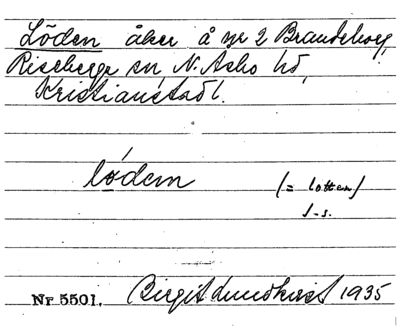 Löden åker å nr 2 Brandeborg,
Riseberga sn, N. Åsbo hd,
Kristianstad l.
lódɘn
(= lotten)
s-s.
Nr 5501. Birgit Lundkvist 1935